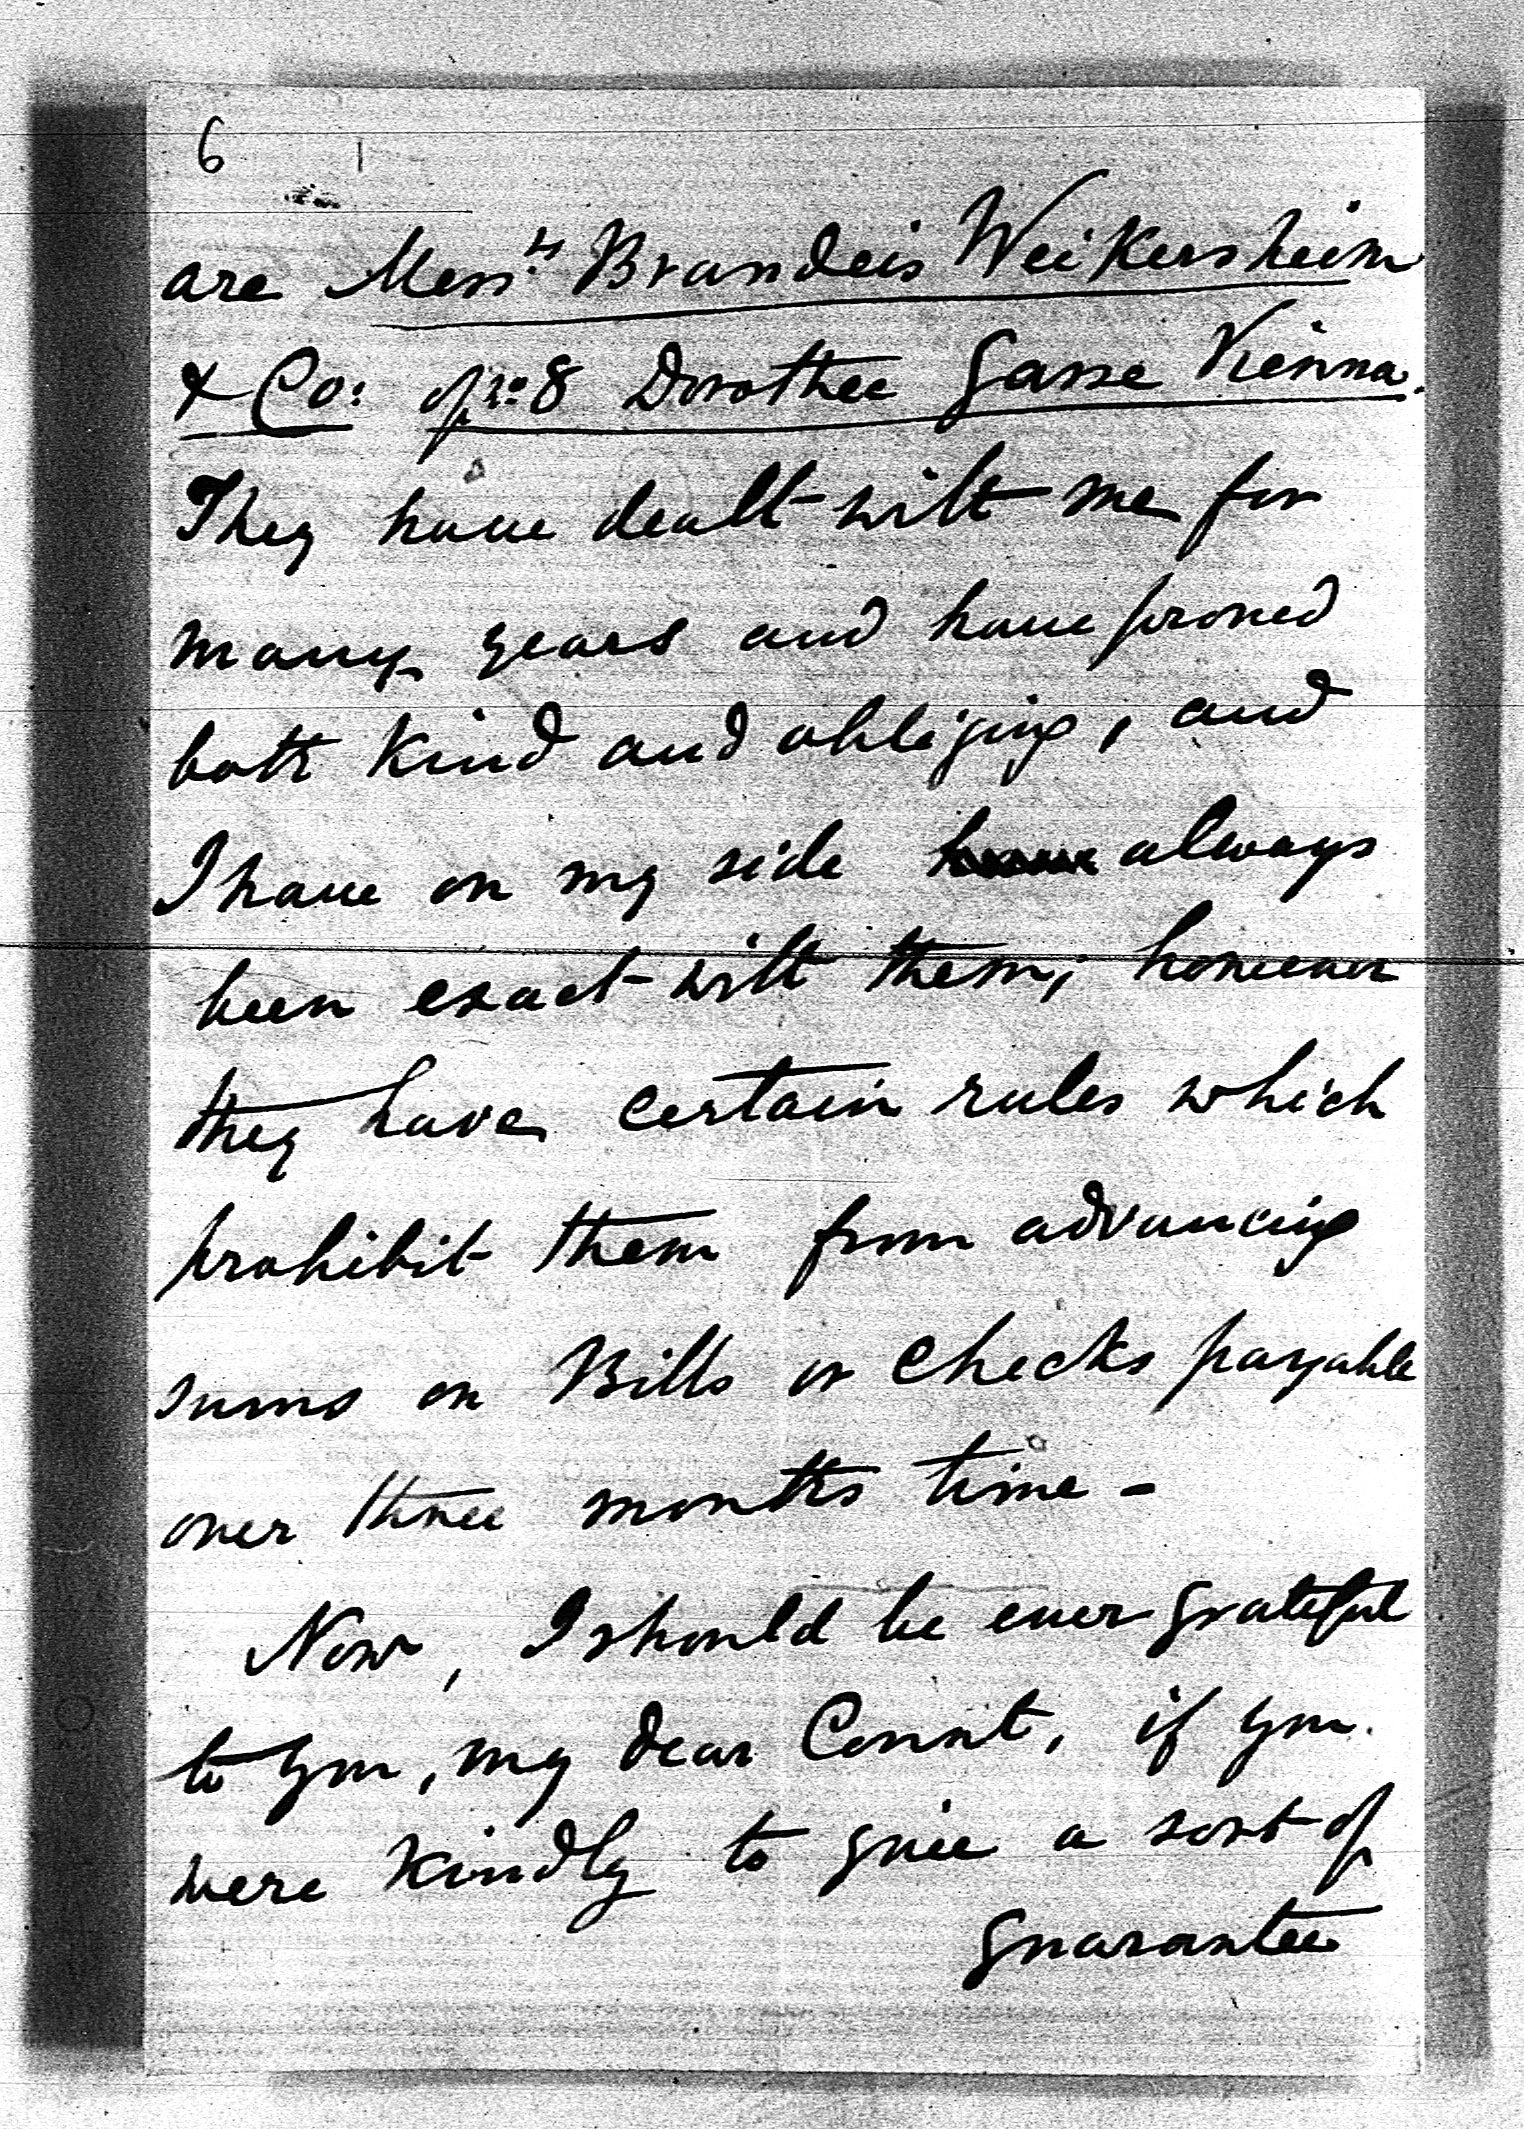 6
are Messrs Brandeis Weikersheim
& Co: of No 8 Dorothee Gasse Vienna.
They have dealt with me for
many years and have proved
both kind and obliging, and
I have on my side have always
been exact with them; however
they have certain rules which
prohibit them from advancing
sums on Bills or Checks payable
over three months time -
Now, I should be ever grateful
to you, my dear Count, if you
were kindly to give a sort of
guarantee